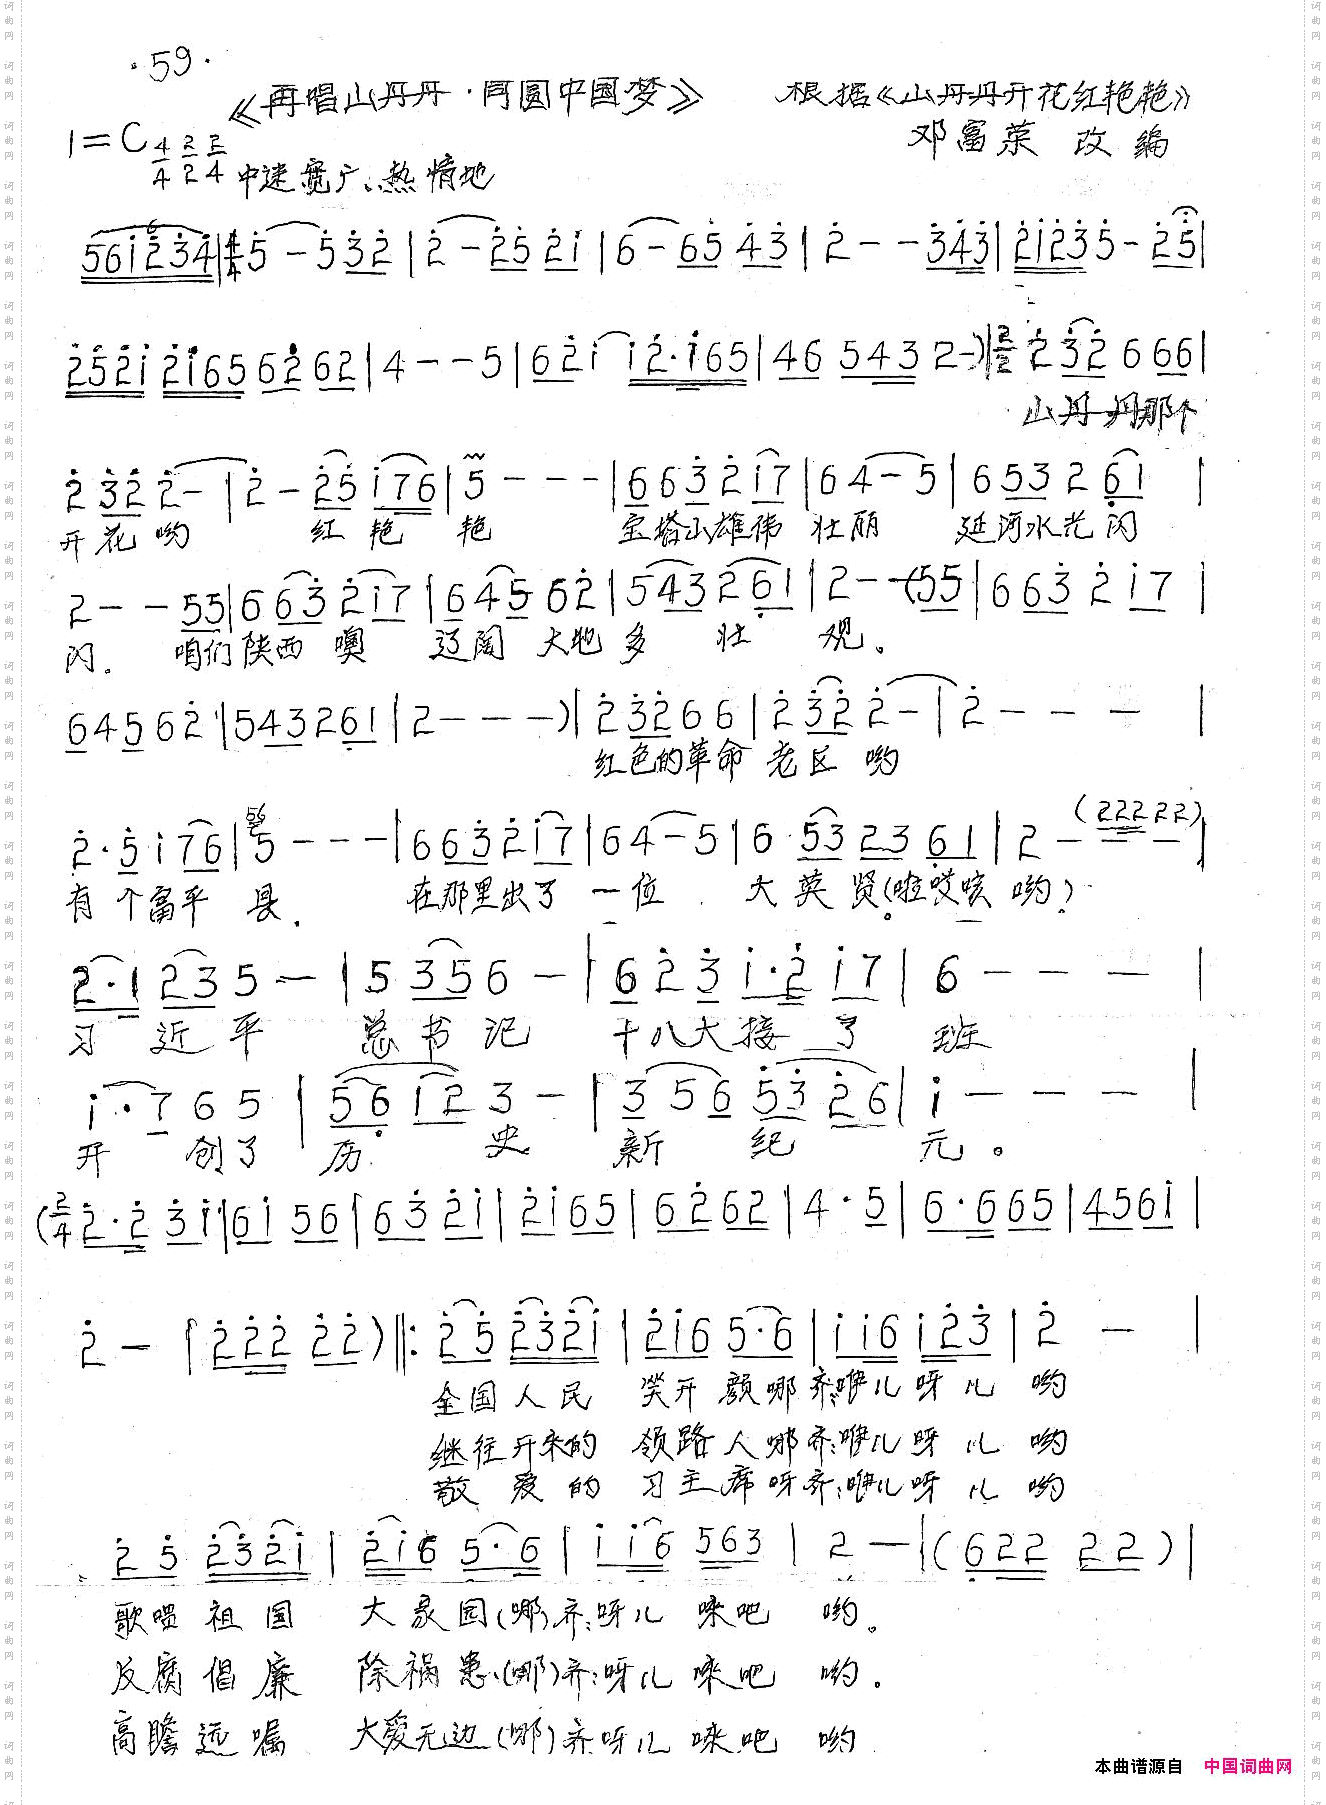 ·59·
《再唱山丹丹·同圆中国梦》 根据《山丹丹开花红艳艳》
1=C 4/4 2/2 2/4 邓富荣 改编
中速 宽广、热情地
561̇2̇3̇4̇ | 4/4 5̇ - 5̇ 3̇2̇ | 2̇ - 2̇5̇ 2̇1̇ | 6 - 65̇ 4̇3̇ | 2̇ - - 3̇4̇3̇ | 2̇1̇2̇3̇ 5̇ - 2̇5̇ |
2̇5̇2̇1̇ 2̇1̇65 62̇ 62 | 4 - - 5 | 62̇ 1̇ 1̇2̇·1̇65 | 46 543 2 -) | 2/2 2̇ 3̇2̇ 6 66 |
山丹丹那个
2̇ 3̇2̇ 2̇ - | 2̇ - 2̇5̇ 1̇76 | 5 - - - | 663̇ 2̇ 1̇7 | 64 - 5 | 653 2 61 |
开花哟 红艳艳 宝塔山雄伟 壮丽 延河水光闪
2 - - 55 | 6 63̇ 2̇1̇7 | 645 62̇ | 543 261 | 2 - - (55 | 6 63̇ 2̇ 1̇7 |
闪. 咱们陕西噢 辽阔大地多壮观。
645 62̇ | 543261 | 2 - - -) | 2̇ 3̇2̇ 66 | 2̇ 3̇2̇ 2̇ - | 2̇ - - - |
红色的革命 老区 哟
2̇·5̇ 1̇ 76 | 5 - - - | 663̇ 2̇ 1̇7 | 64 - 5 | 6·53 23 61 | 2 - - - (222 22) |
有个富平 县. 在那里出了 一位 大英贤(啦哎咳哟)
2·1 23 5 - | 5 35 6 - | 6 2̇ 3̇ 1̇·2̇ 1̇7 | 6 - - - |
习近平 总书记 十八大接了班
1̇·7 6 5 | 56 12 3 - | 3 5 6 5̇3̇ 2̇6 | 1̇ - - - |
开创了 历史 新纪元。
(2/4 2̇·2̇ 3̇1̇ | 61̇ 56 | 63̇ 2̇1̇ | 2̇1̇65 | 62̇62 | 4·5 | 6·665 | 4561̇ |
2̇ - | 2̇2̇2̇ 2̇2̇) ‖: 2̇5̇ 2̇3̇2̇1̇ | 2̇1̇6 5·6 | 1̇1̇6 1̇2̇3̇ | 2̇ - |
全国人民 笑开颜哪 齐:咿儿呀儿 哟
继往开来的 领路人哪齐:咿儿呀儿 哟
敬爱的 习主席呀齐:咿儿呀儿 哟
2̇ 5̇ 2̇3̇2̇1̇ | 2̇1̇6 5·6 | 1̇1̇6 563 | 2 - | (622 22) |
歌唱祖国 大家园(哪)齐:呀儿 咪吧 哟。
反腐倡廉 除祸患(哪)齐:呀儿 咪吧 哟。
高瞻远嘱 大爱无边(哪)齐呀儿 咪吧 哟
本曲谱源自 中国词曲网